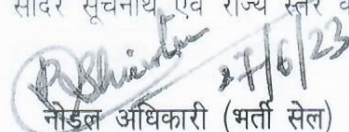 सादर सूचनार्थ एवं राज्य स्तर
27/6/23
नोडल अधिकारी (भर्ती सेल)